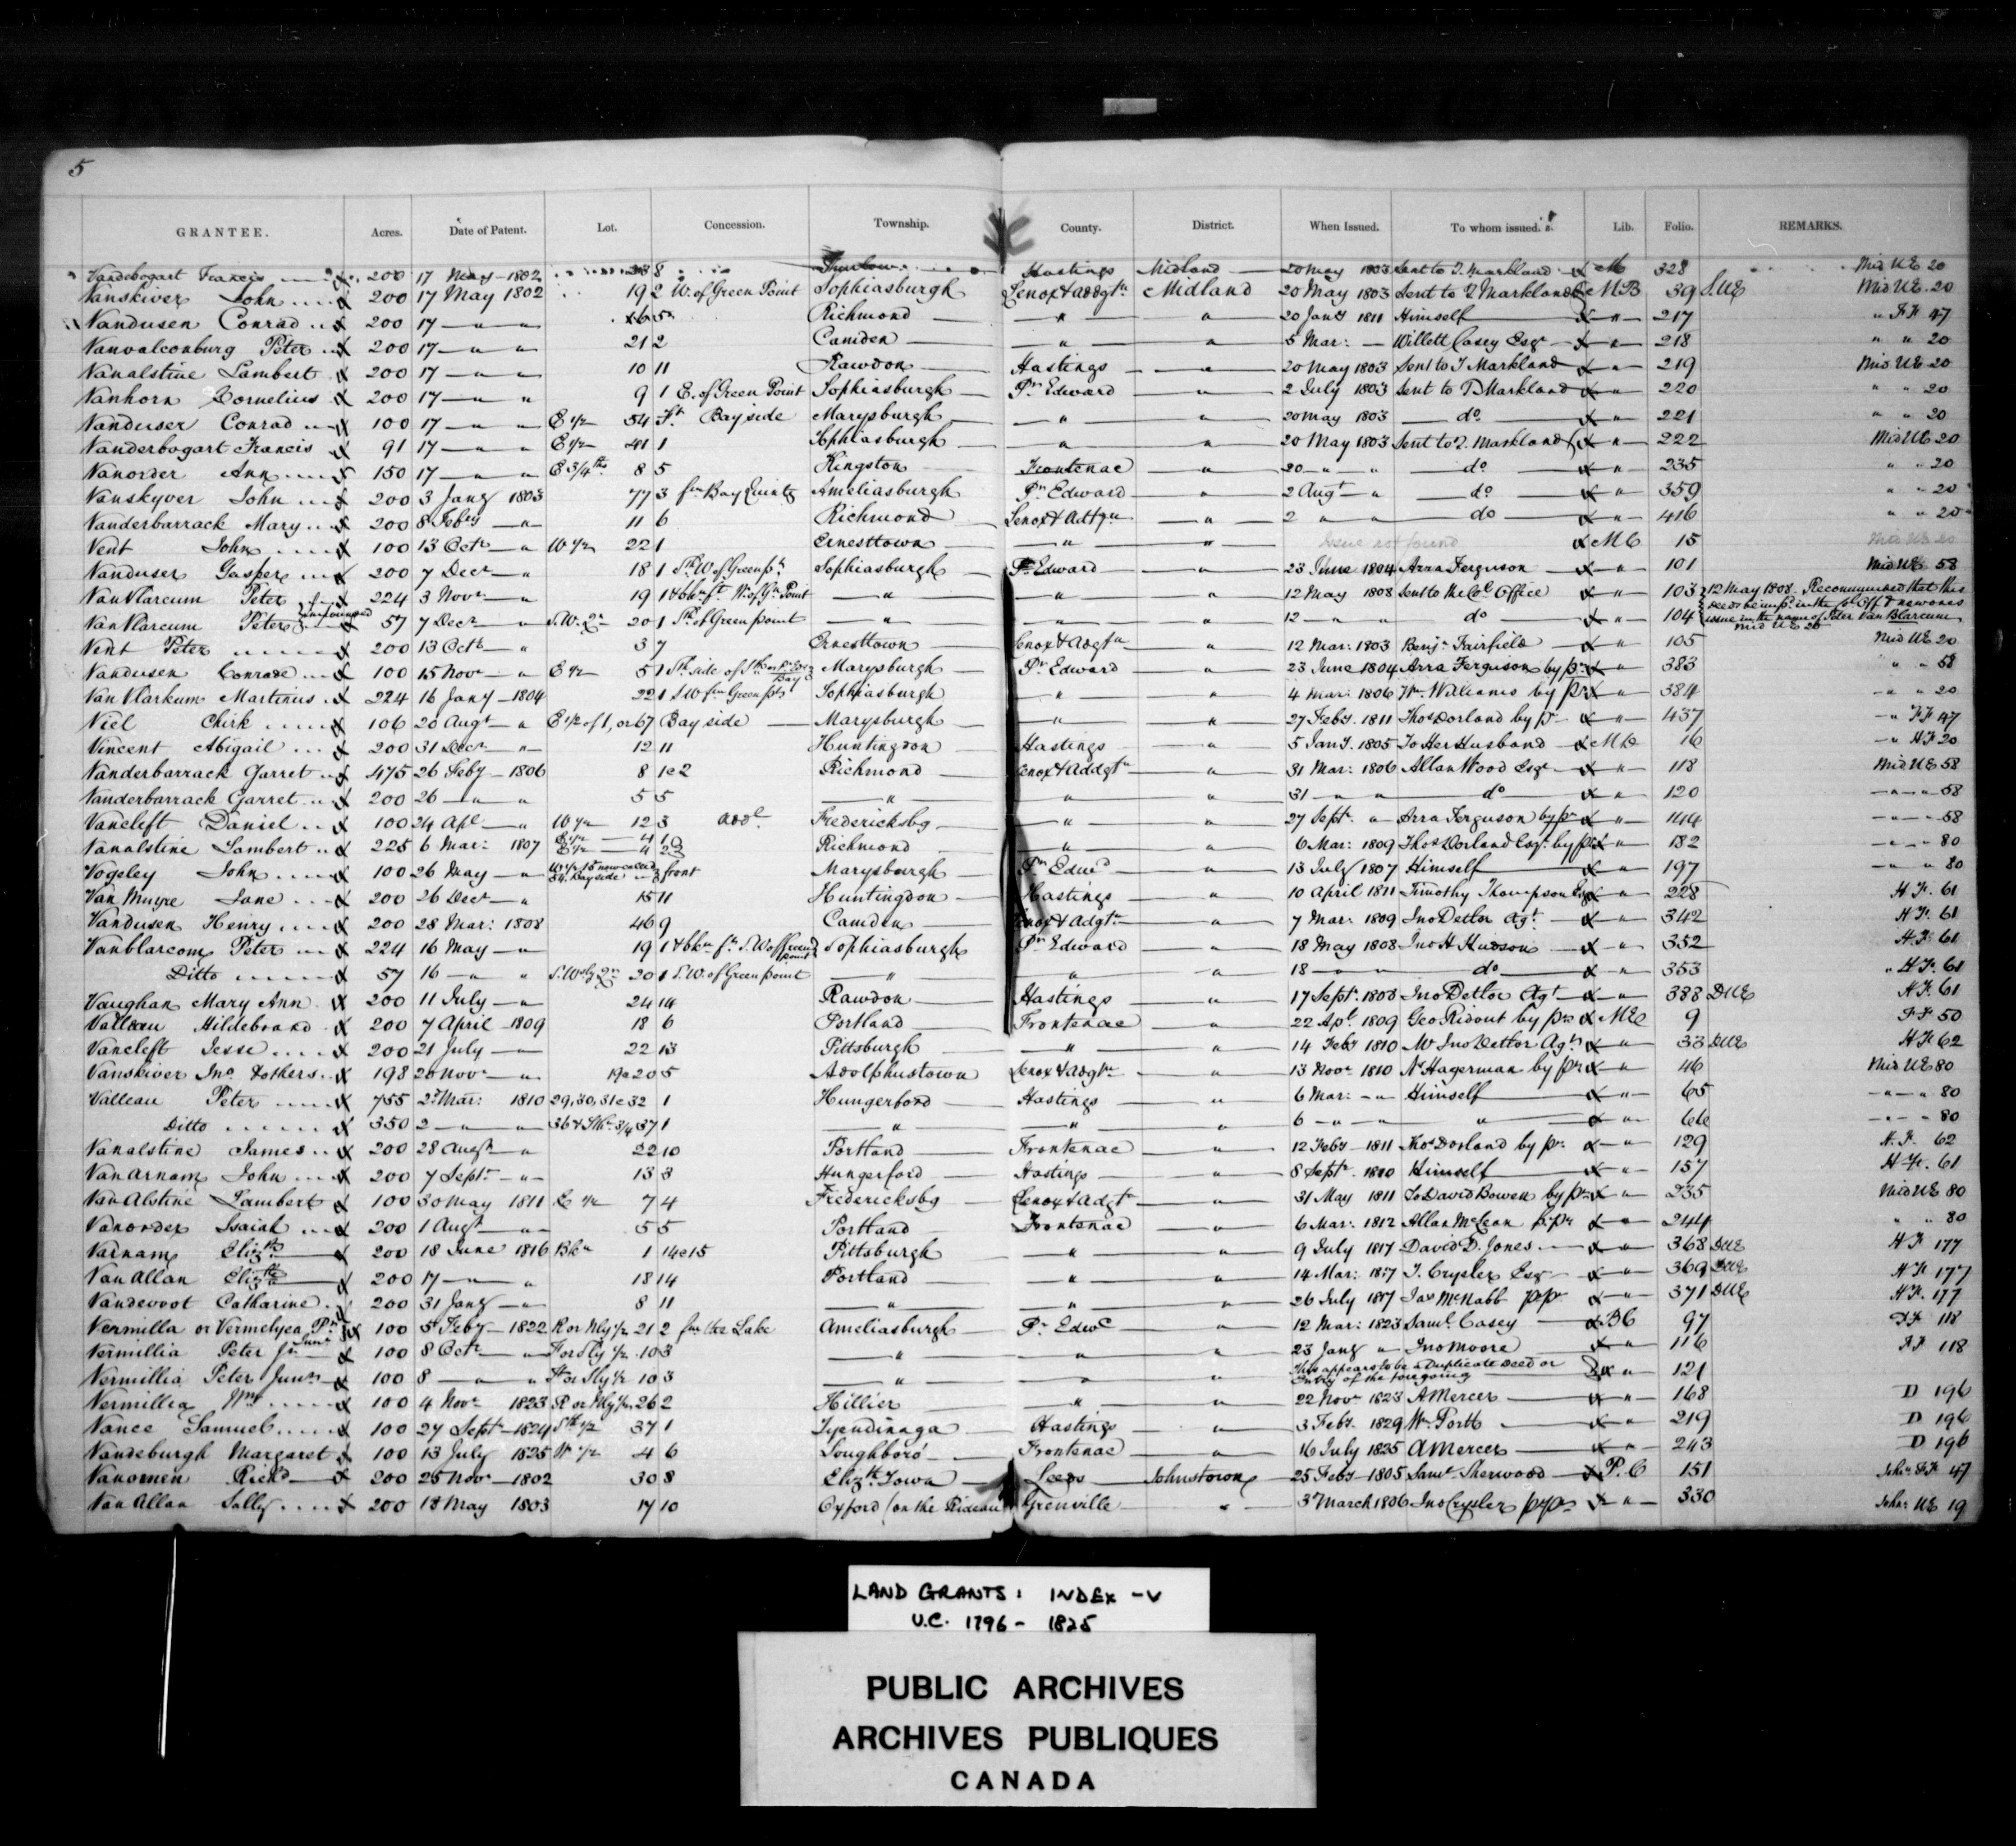 5
GRANTEE. Acres. Date of Patent. Lot. Concession. Township. County. District. When Issued. To whom issued. Lib. Folio. REMARKS.
Vandebogart Francis 200 17 May 1802 8 Hastings Midland 20 May 1803 Sent to T. Markland M 328 Mid UE 20
Vanskiver John 200 17 May 1802 19 2 W. of Green Point Sophiasburgh Lenox & Addgtn Midland 20 May 1803 Sent to T Markland MB 39 S.UE Mid UE 20
Vandusen Conrad 200 17 " " Richmond " " 20 Jany 1811 Himself " 217 " FF 47
Vanvalconburg Peter 200 17 " " 21 2 Camden " " 5 Mar: Willett Casey Esqr " 218 " " 20
Vanalstine Lambert 200 17 " " 10 11 Rawdon Hastings " 20 May 1803 Sent to T Markland " 219 Mid UE 20
Vanhorn Cornelius 200 17 " " 9 1 E. of Green Point Sophiasburgh Pr Edward " 2 July 1803 Sent to T Markland " 220 " " 20
Vanduser Conrad 100 17 " " E 1/2 54 Ft Bay side Marysburgh " " 20 May 1803 do " 221 " " 20
Vanderbogart Francis 91 17 " " E 1/2 41 1 Sophiasburgh " " 20 May 1803 Sent to T. Markland " 222 Mid UE 20
Vanorder Ann 150 17 " " E 3/4ths 8 5 Kingston Frontenac " 20 " " do " 235 " " 20
Vanskyver John 200 3 Jany 1803 77 3 fm Bay Quinty Ameliasburgh Pr Edward " 2 Augt " do " 359 " " 20
Vanderbarrack Mary 200 8 Feby " 11 6 Richmond Lenox & Adtgn " 2 " " do " 416 " " 20
Vent John 100 13 Octr " W 1/2 22 1 Ernesttown " " Issue not found MC 15 Mid UE 20
Vanduser Gasper 200 7 Decr " 18 1 St W. of Green pt Sophiasburgh Pr Edward " 23 June 1804 Arra Ferguson " 101 Mid UE 58
Van Vlarcum Peter 224 3 Novr " 19 1 & bkn ft W. of Gn Point " " " 12 May 1808 Sent to the Col Office " 103 12 May 1808. Recommended that this
Van Vlarcum Peter 57 7 Decr " S.W. Qr 20 1 St of Green point " " " 12 " " do " 104 issue in the name of Peter Van Blarcum Mid UE 20
Vent Peter 200 13 Octr " 3 7 Ernesttown Lenox & Adgtn " 12 Mar: 1803 Benjn Fairfield " 105 Mid UE 20
Vandusen Conrade 100 15 Novr " E 1/2 5 1 Marysburgh Pr Edward " 23 June 1804 Arra Ferguson by pr " 383 " " 58
Van Vlarkum Martinus 224 16 Jany 1804 22 1 S.W fm Green pt Sophiasburgh " " 4 Mar: 1806 Wm Williams by pr " 384 " " 20
Viel Chirk 106 20 Augt " E 1/2 of 1, or 67 Bay side Marysburgh " " 27 Feby 1811 Thos Dorland by pr " 437 " FF 47
Vincent Abigail 200 31 Decr " 12 11 Huntingdon Hastings " 5 Jany. 1805 To Her Husband MD 16 " HF 20
Vanderbarrack Garret 475 26 Feby 1806 8 1 & 2 Richmond Lenox & Addgtn " 31 Mar: 1806 Allan Wood Esqr " 118 Mid UE 58
Vanderbarrack Garret 200 26 " " 5 5 " " " 31 " " do " 120 " " " 58
Vancleft Daniel 100 24 Apl " W 1/2 12 3 addl Fredericksbg " " 27 Septr " Arra Ferguson by pr " 144 " " " 58
Vanalstine Lambert 225 6 Mar: 1807 Richmond " " 6 Mar: 1809 Thos Dorland Esqr by pr " 182 " " 80
Vogeley John 100 26 May " W 1/2 15 now called 34 Bay side front Marysburgh Pr Edwd " 13 July 1807 Himself " 197 " " 80
Van Muyre Jane 200 26 Decr " 15 11 Huntingdon Hastings " 10 April 1811 Timothy Thompson Esq " 228 HF. 61
Vandusen Henry 200 28 Mar: 1808 46 9 Camden Lenox & Adgtn " 7 Mar: 1809 Jno Detlor Agt " 342 HF. 61
Vanblarcom Peter 224 16 May " 19 1 & bkn ft S.W of Green point Sophiasburgh Pr Edward " 18 May 1808 Jno H Hudson " 352 HF. 61
Ditto 57 16 " " S.Wly Qr 20 1 S.W. of Green point " " " 18 " " do " 353 " HF. 61
Vaughan Mary Ann 200 11 July " 24 14 Rawdon Hastings " 17 Septr 1808 Jno Detlor Agt " 388 DUE HF. 61
Valleau Hildebrand 200 7 April 1809 18 6 Portland Frontenac " 22 Apl 1809 Geo Ridout by pr ME 9 FF 50
Vancleft Jesse 200 21 July " 22 13 Pittsburgh " " 14 Feby 1810 Mr Jno Detlor Agt " 33 DUE HF 62
Vanskiver Jno & others 198 20 Novr " 19 & 20 5 Adolphustown Lenox & Adgtn " 13 Novr 1810 Hagerman by pr " 46 Mid UE 80
Valleau Peter 755 2d Mar: 1810 29, 30, 31 & 32 1 Hungerford Hastings " 6 Mar: " Himself " 65 " " 80
Ditto 350 2 " " 37 1 " " " 6 " " " " 66 " " 80
Vanalstine James 200 28 Augt " 22 10 Portland Frontenac " 12 Feby 1811 Thos Dorland by pr " 129 H.F. 62
Van Arnam John 200 7 Septr " 13 3 Hungerford Hastings " 8 Septr 1810 Himself " 157 HF. 61
Van Alstine Lambert 100 30 May 1811 E 1/2 7 4 Fredericksbg Lenox & Adgtn " 31 May 1811 To David Bowen by pr " 235 Mid UE 80
Vanorder Isaiah 200 1 Augt " 5 5 Portland Frontenac " 6 Mar: 1812 Allan McLean " 244 " " 80
Varnam Elizth 200 18 June 1816 Bkn 1 14 & 15 Pittsburgh " " 9 July 1817 David D. Jones " 368 DUE HF 177
Van Allan Elizth 200 17 " " 18 14 Portland " " 14 Mar: 1817 J. Crysler Esq " 369 DUE HF 177
Vandevoot Catharine 200 31 Jany " 8 11 " " " 26 July 1817 Jas McNabb " 371 DUE HF. 177
Vermilla or Vermelyea Pr 100 5 Feby 1822 R or Nly 1/2 21 2 fm the Lake Ameliasburgh Pr Edwd " 12 Mar: 1823 Saml Casey BC 97 FF 118
Vermillia Peter Junr 100 8 Octr " F or Sly 1/2 10 3 " " " 23 Jany " Jno Moore " 116 FF 118
Vermillia Peter Junr 100 8 " " F or Sly 1/2 10 3 " " " This appears to be a Duplicate Deed or Entry of the foregoing " 121
Vermillia Wm 100 4 Novr 1823 R or Nly 1/2 26 2 Hillier " " 22 Novr 1823 A Mercer " 168 D 196
Vance Samuel 100 27 Septr 1824 Sth 1/2 37 1 Tyendinaga Hastings " 3 Feby 1829 Wm Portt " 219 D 196
Vandeburgh Margaret 100 13 July 1825 W 1/2 4 6 Loughboro' Frontenac " 16 July 1825 A Mercer " 243 D 196
Vanomen Richd 200 25 Novr 1802 30 8 Elizth Town Leeds Johnstown 25 Feby 1805 Saml Sherwood P.C 151 Johns FF 47
Van Allan Sally 200 18 May 1803 17 10 Oxford (on the Rideau Grenville " 3d March 1806 Jno Crysler " 330 Johns UE 19
LAND GRANTS: INDEX - V
U.C. 1796 - 1825
PUBLIC ARCHIVES
ARCHIVES PUBLIQUES
CANADA